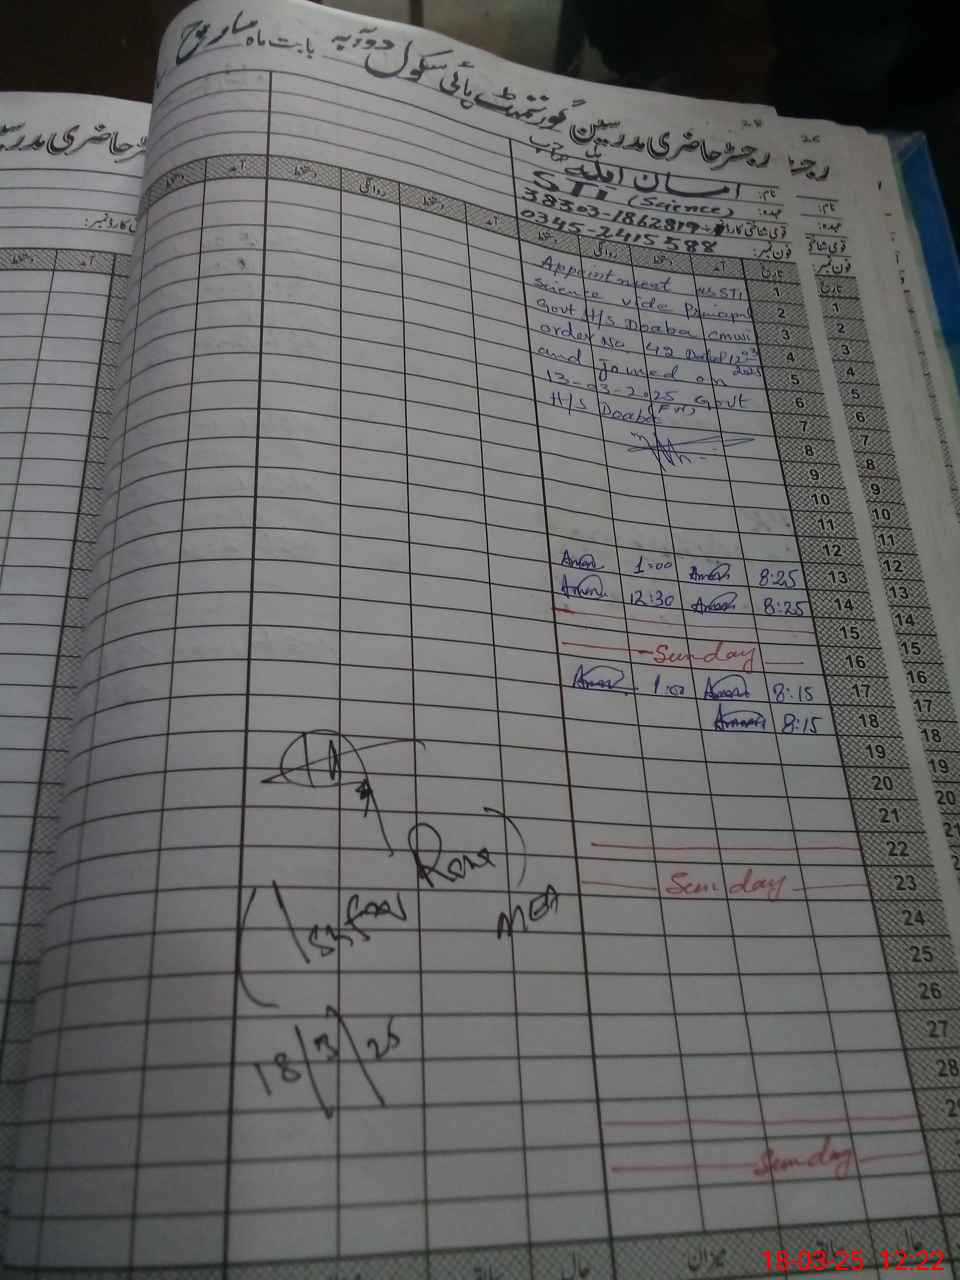 رجسٹر حاضری مدرسین گورنمنٹ ہائی سکول دوآبہ بابت ماہ مارچ
نام: امان اللہ
عہدہ: STI (Science)
قومی شناختی کارڈ نمبر 38303-1862819-
فون نمبر: 0345-2415588
تاریخ آمد دستخط روانگی دستخط آمد دستخط روانگی دستخط آمد دستخط
Appointment as STI
Science vide Principal
Govt H/S Doaba
order No. 42 Dated 12 03 2025
and joined on
13-03-2025 Govt
H/S Doaba
1
2
3
4
5
6
7
8
9
10
11
12
13 8:25 Aman 1:00 Aman
14 8:25 Aman 12:30 Aman
15
16 Sunday
17 8:15 Aman 1:00 Aman
18 8:15 Aman
19
20
21
22
23 Sunday
24
25
26
27
28
29
Sunday
MEA
18/3/25
میزان
18-03-25 12:22